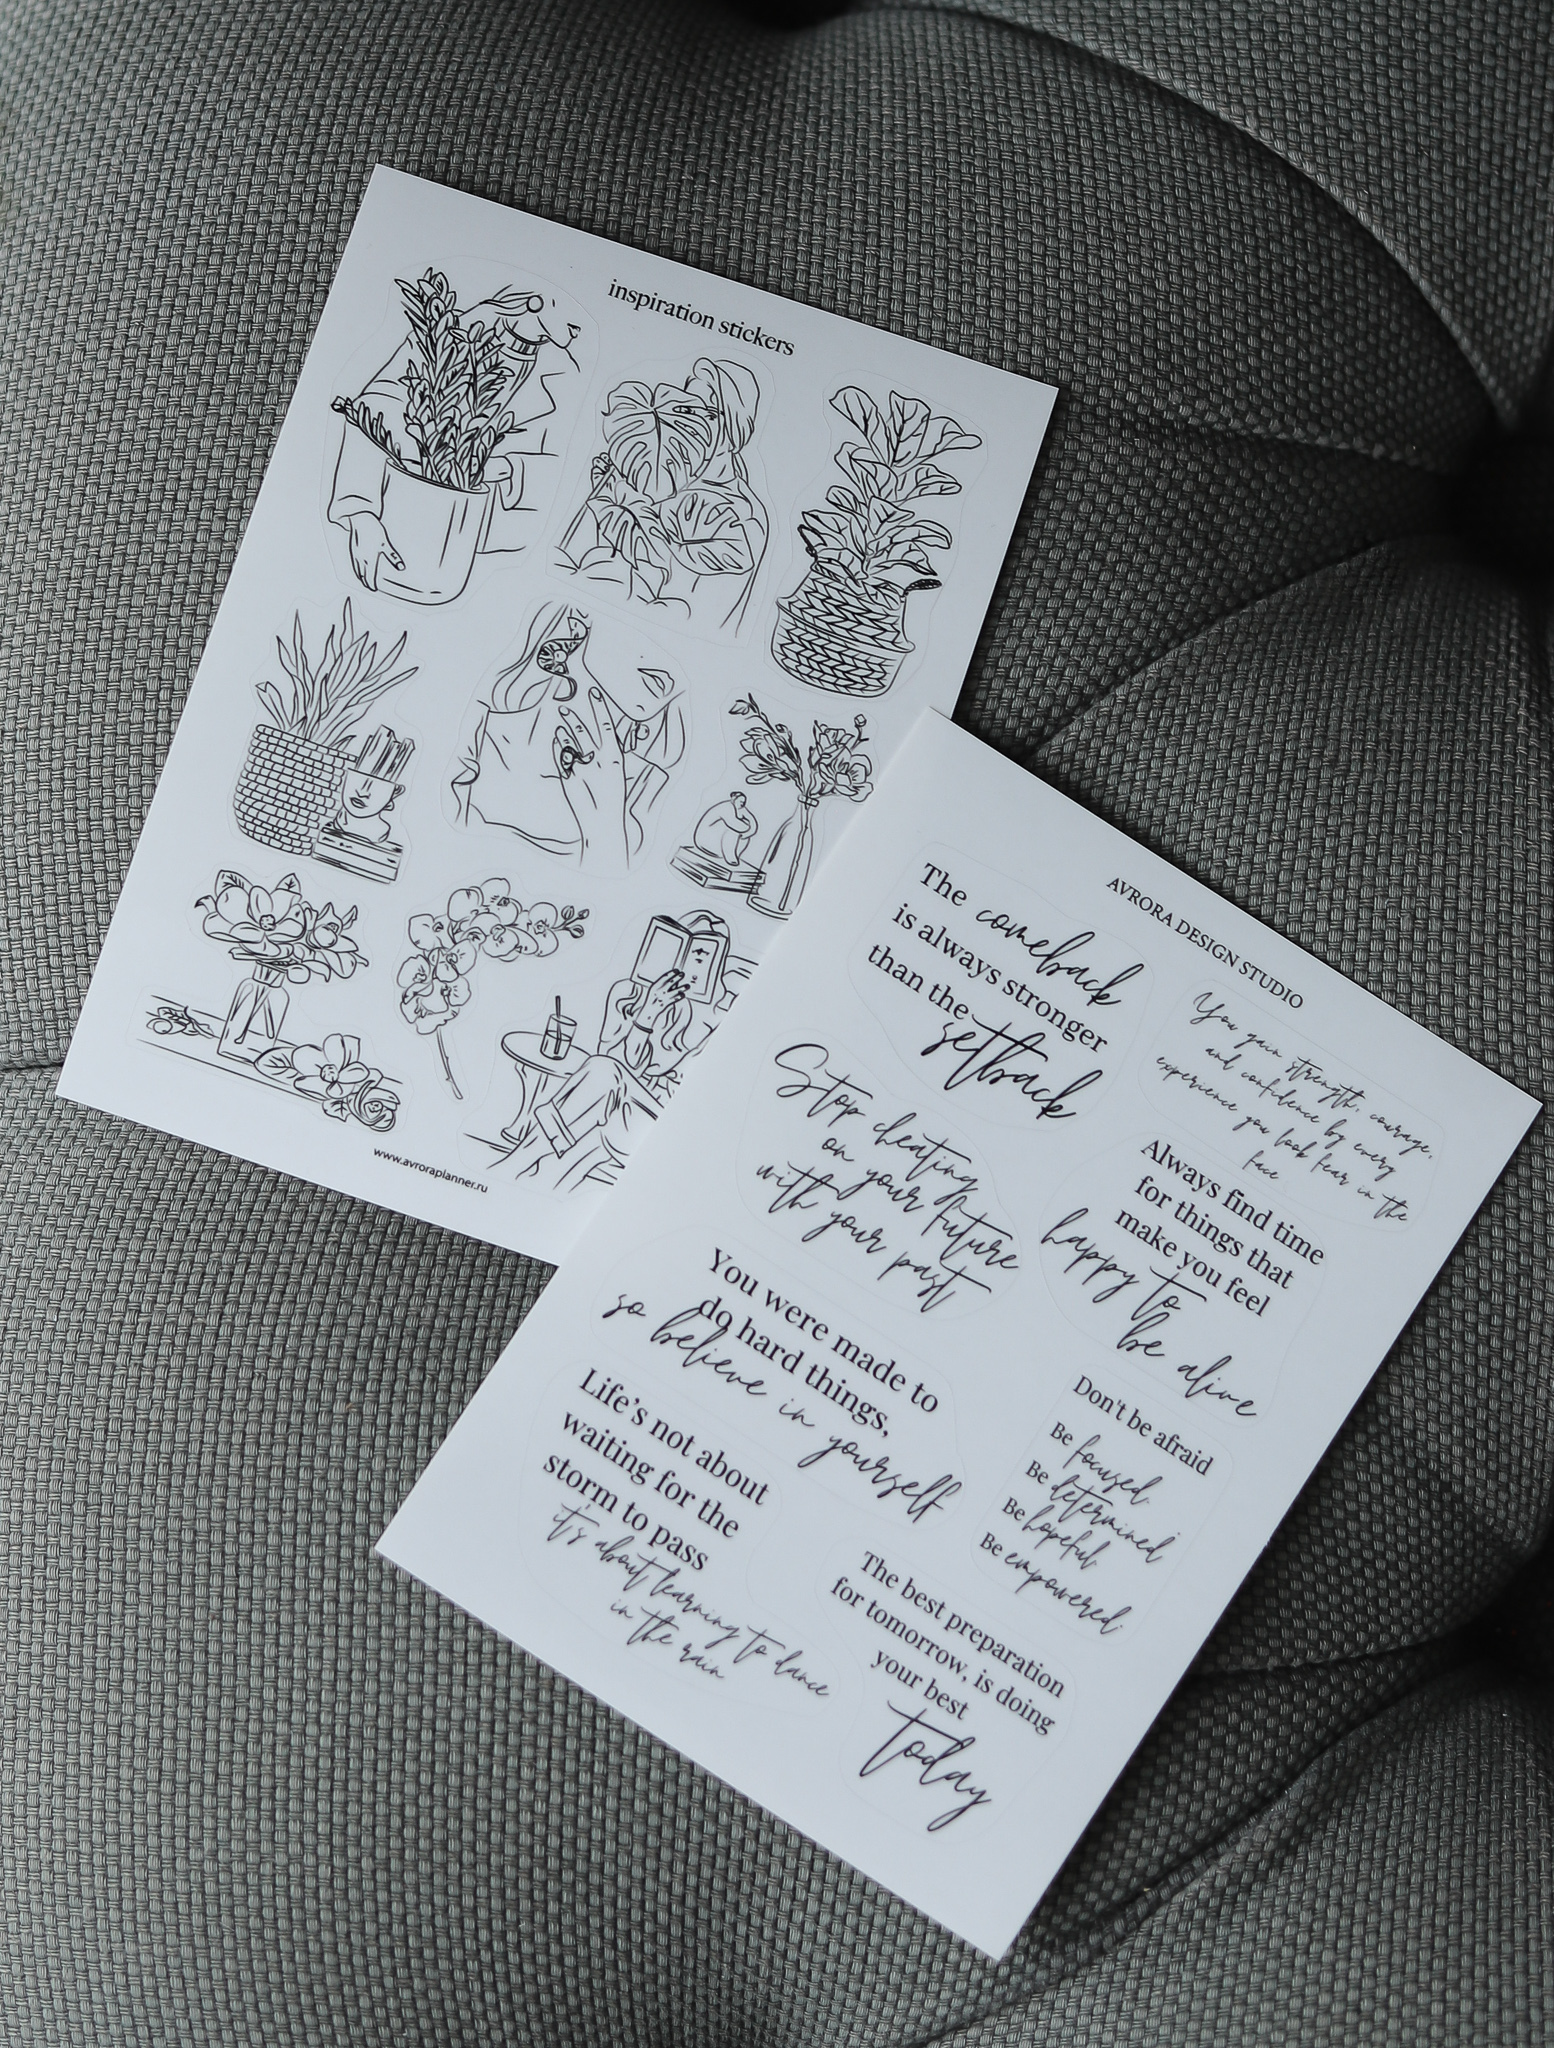 inspiration stickers
www.avroraplanner.ru
AVRORA DESIGN STUDIO
The comeback
is always stronger
than the
setback
You gain strength, courage,
and confidence by every
experience you look fear in the
face
Stop cheating
on your future
with your past
Always find time
for things that
make you feel
happy to
be alive
You were made to
do hard things,
so believe in yourself
Don't be afraid
Be focused.
Be determined
Be hopeful.
Be empowered.
Life's not about
waiting for the
storm to pass
it's about learning to dance
in the rain
The best preparation
for tomorrow, is doing
your best
today